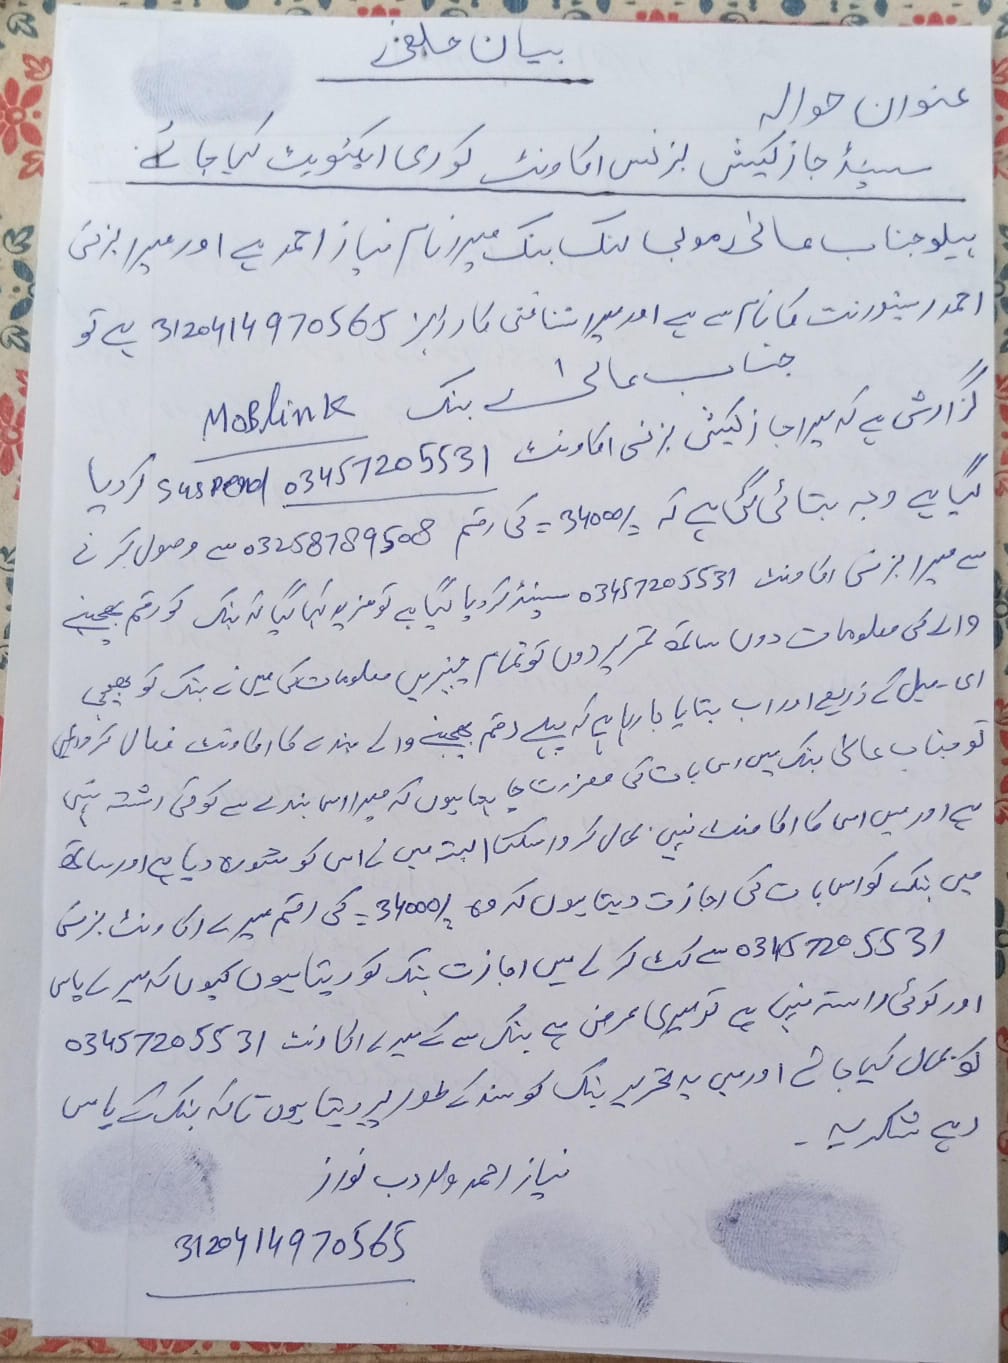 بیان حلفی
عنوان حوالہ
سسپنڈ جاز کیش بزنس اکاونٹ کو ری ایکٹویٹ کیا جائے
ہیلو جناب عالی موبی لنک بنک میرا نام نیاز احمد ہے اور میرا بزنس
احمد ریسٹورنٹ کا نام سے ہے اور میرا شناختی کارڈ نمبر 3120414970565 ہے تو
جناب عالی بنک MoBlink
گزارش ہے کہ میرا جاز کیش بزنس اکاونٹ 03457205531 suspend کر دیا
گیا ہے وجہ بتائی گئی ہے کہ 34000/= کی رقم 03258789508 سے وصول کرنے
سے میرا بزنس اکاونٹ 03457205531 سسپنڈ کر دیا گیا ہے تو مزید کہا گیا کہ بنک کو رقم بھیجنے
والے کی معلومات دوں ساتھ تحریر دوں تو تمام چیزیں معلومات کی میں نے بنک کو بھیجی
ای۔میل کے ذریعے اور اب بتایا جا رہا ہے کہ پہلے رقم بھیجنے والے بندے کا اکاونٹ فعال کرواؤں
تو جناب عالی بنک میں اس بات کی معزرت چاہتا ہوں کہ میرا اس بندے سے کوئی رشتہ نہیں
ہے اور میں اس کا اکاونٹ نہیں بحال کروا سکتا البتہ میں نے اس کو مشورہ دیا ہے اور ساتھ
میں بنک کو اس بات کی اجازت دیتا ہوں کہ وہ 34000/= کی رقم میرے اکاونٹ بزنس
03457205531 سے کٹ کر لے میں اجازت بنک کو دیتا ہوں کیوں کہ میرے پاس
اور کوئی راستہ نہیں ہے تو میری عرض ہے بنک سے کے میرے اکاونٹ 03457205531
کو بحال کیا جائے اور میں یہ تحریر بنک کو سند کے طور پر دیتا ہوں تاکہ بنک کے پاس
رہے شکریہ ۔
نیاز احمد ولد رب نواز
3120414970565